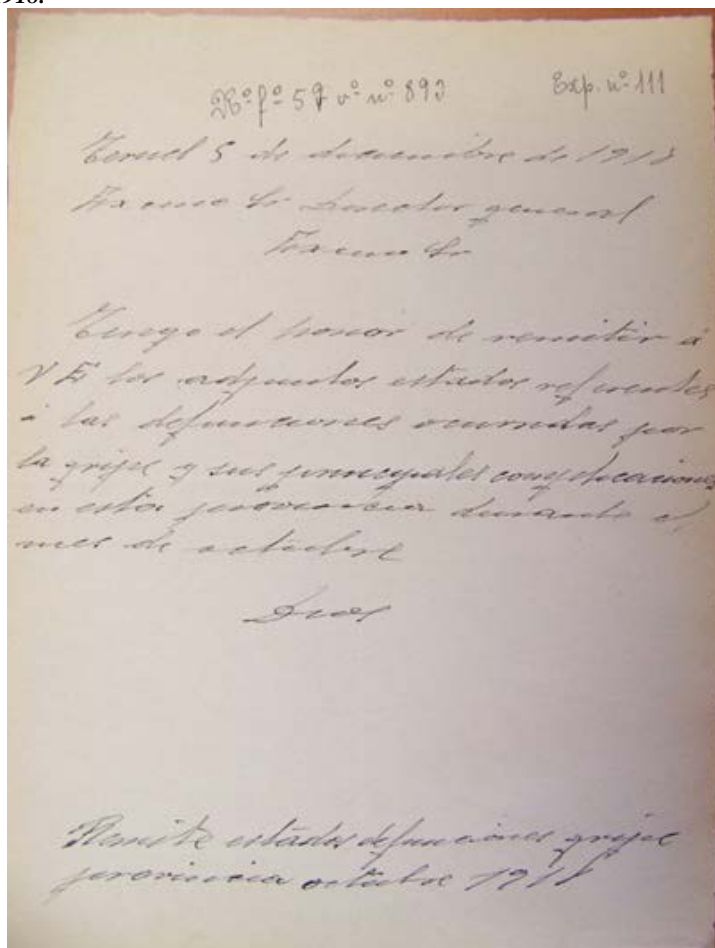 918.
Rº fº 57 vº nº 893 Exp. nº 111
Teruel 5 de diciembre de 1918
Excmo Sr Director general
Excmo Sr
Tengo el honor de remitir á
V E los adjuntos estados referentes
á las defunciones ocurridas por
la gripe y sus principales complicaciones
en esta provincia durante el
mes de octubre
Dios
Remite estados defunciones gripe
provincia octubre 1918